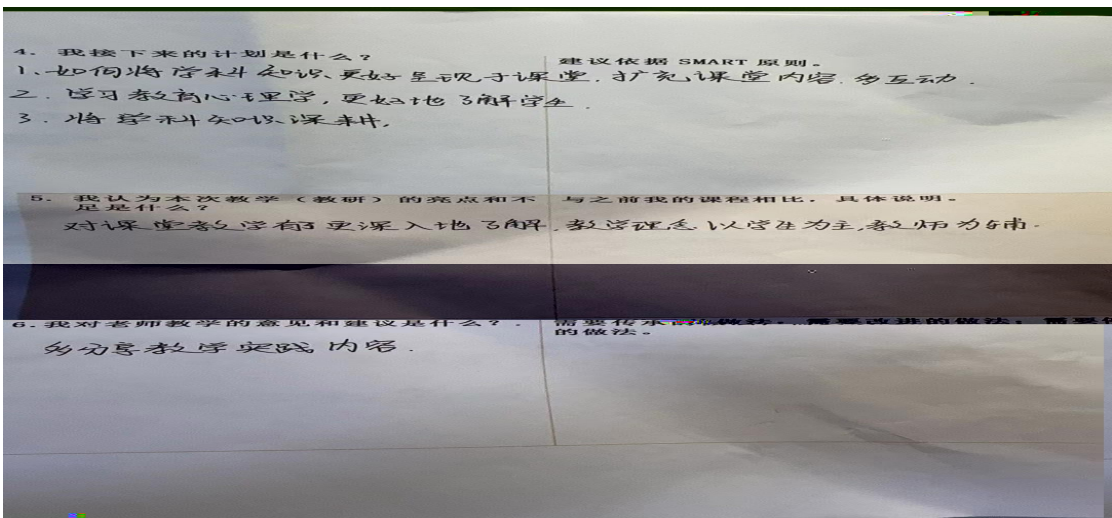 4. 我接下来的计划是什么？ 建议依据 SMART 原则。
1、如何将学科知识、更好呈现于课堂，扩充课堂内容，多互动．
2．学习教育心理学，更好地了解学生．
3．将学科知识深耕，
5. 我认为本次教学（教研）的亮点和不 与之前我的课程相比，具体说明。
足是什么？
对课堂教学有了更深入地了解，教学理念以学生为主，教师为辅．
6．我对老师教学的意见和建议是什么？． 需要传承的做法；需要改进的做法；需要
的做法。
多分享教学实践内容．